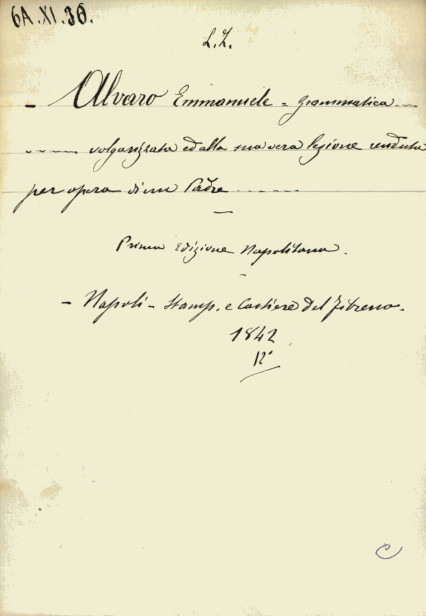 6A.XI.30.
L.Z.
- Alvaro Emmanuele = Grammatica ....
.... volgarizzata ed alla sua vera lezione renduta
per opera di un Padre ......
Prima Edizione Napolitana.
- Napoli - Stamp. e Cartiere del Fibreno.
1842
12°